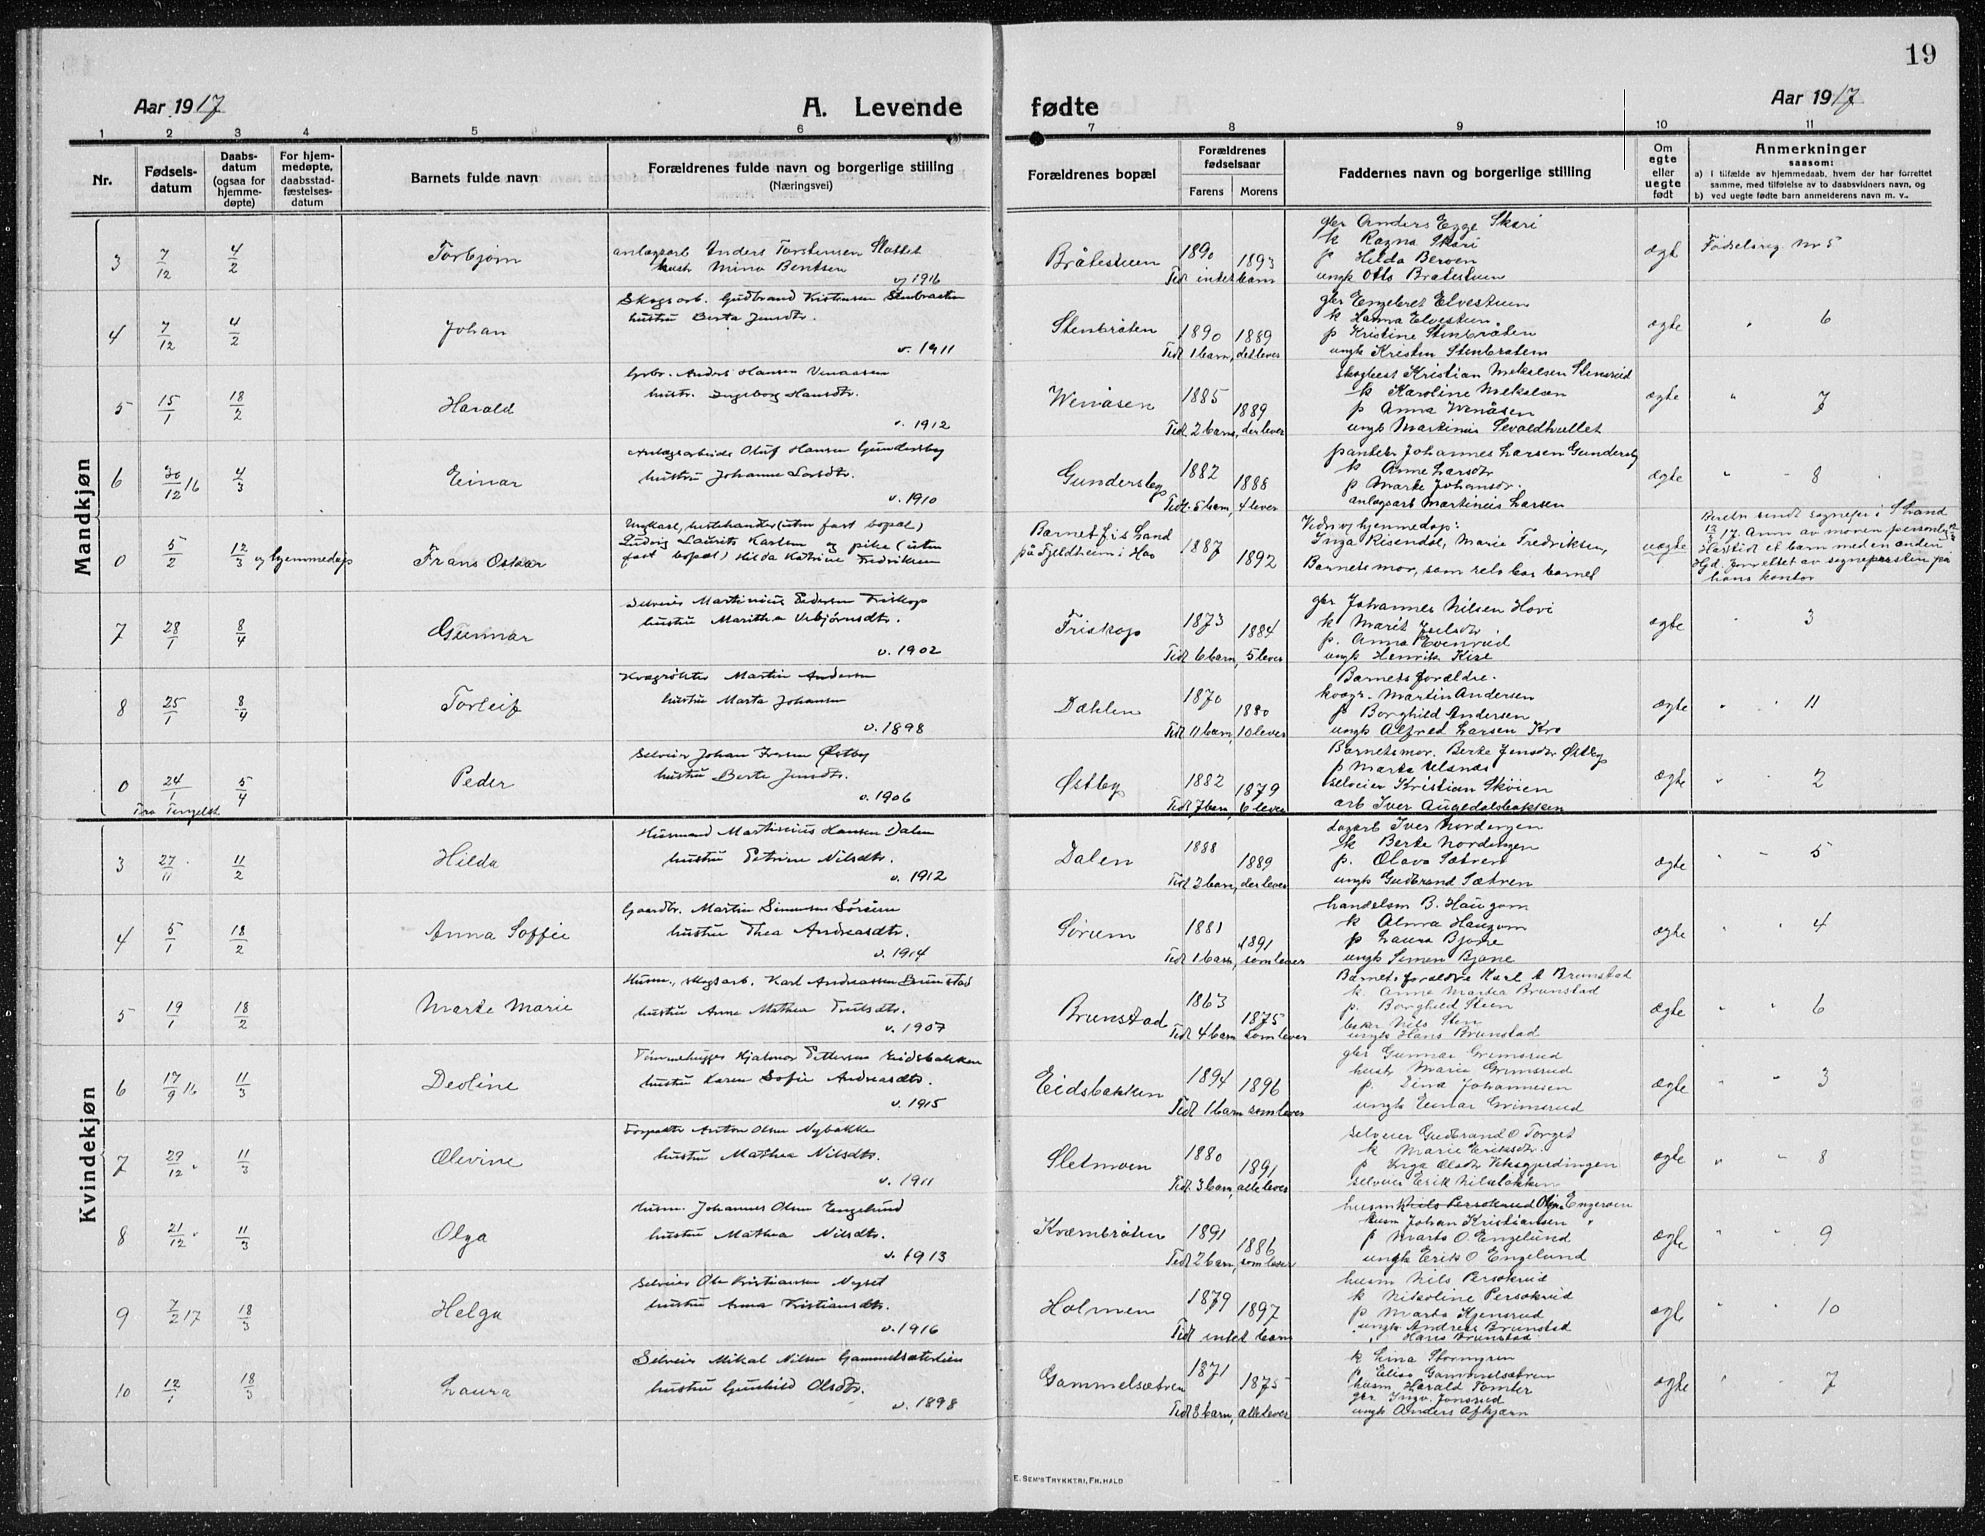 19
Aar 1917
A. Levende fødte
Aar 1917
1 2 3 4 5 6 7 8 9 10 11
Nr.
Fødsels-datum
Daabs-datum (ogsaa for hjemme-døpte)
For hjem-medøpte, daabsstad-fæstelses-datum
Barnets fulde navn
Forældrenes fulde navn og borgerlige stilling (Næringsvei)
Forældrenes bopæl
Forældrenes fødselsaar
Farens Morens
Faddernes navn og borgerlige stilling
Om egte eller uegte født
Anmerkninger
saasom:
a) i tilfælde av hjemmedaab, hvem der har forrettet samme, med tilføielse av to daabsvidners navn, og
b) ved uegte fødte barn anmelderens navn m. v.
Mandkjøn
3 7/12 4/2 Torbjørn
anlægsarb Anders Torstensen Slattet
hustr Mina Bentsen
g 1916
Bråtestuen 1890 1893
Tidl intet barn
gbr Anders Egge Skari
k Ragna Skari
p Hilda Berven
ungk Otto Bråtestuen
egte Fødselsreg Nr 5
4 7/12 4/2 Johan
Skogsarb. Gudbrand Kristensen Stenbraaten
hustru Berta Jensdtr.
v. 1911
Stenbråten 1890 1889
Tidl 1 barn, det lever
gbr Engebret Elvestuen
k Hanna Elvestuen
p Kristine Stenbråten
ungk Kristen Stenbråten
egte " 6
5 15/1 18/2 Harald
Gbr. Anders Hansen Venaasen
hustr. Ingeborg Hansdtr.
v. 1912
Wenåsen 1885 1889
Tidl 2 barn, der lever
Kristian Mekelsen Stensrud
k Karoline Mekelsen
p Anna Wenåsen
ungk Martinus
egte " 7
6 30/12 16 4/3 Einar
Anlægsarbeide Oluf Hansen Gundersby
hustru Johanne Larsdtr.
v. 1910
Gundersby 1882 1888
Tidl. 5 barn, 4 lever
Johannes Larsen Gundersby
k Anne Larsdtr
p Marte Johansdr.
anlægsarb Martinius Larsen
egte " 8
0 5/2 12/3 og hjemmedøp Frans Oskar
Ungkarl, hestehandler (uten fast bopæl)
Ludvig Laurits Karlsen og pike (uten
fast bopæl) Hilda Katrine Fredriksen
Barnet f i s Land
på Fjeldheim i Hov
1887 1892
Vidner v hjemmedøp:
Inga Risendal, Marie Fredriksen,
Barnets mor, som selv bar barnet
uegte
Har tidl et barn med en anden
Hjd. forrettet av sognepresten på
hans kontor
7 28/1 8/4 Gunnar
Selveier Martinius Pedersen Friskop
hustru Maritha Urbjørnsdtr.
v. 1902
Friskop 1873 1884
Tidl 6 barn, 5 lever
gbr Johannes Nilsen Hovi
k Marit
p. Anna Evenrud
ungk Henrik Kise
egte " 3
8 25/1 8/4 Torleif
Kvægrøkter Martin Andersen
hustru Marta Johansen
v. 1898
Dæhlen 1870 1880
Tidl 11 barn, 10 lever
Barnets forældre.
kvægr. Martin Andersen
p Borghild Andersen
ungk Alfred Larsen Kro
egte " " 11
0 24/1 5/4 Peder
Fra Tingelst.
Selveier Johan Østby
hustru Berte Jensdtr.
v. 1906
Østby 1882 1879
Tidl 7 barn, 6 lever
Barnets mor. Berte Jensdtr Østby
p Marta Ulsnes
selveier Kristian Skøien
arb Iver Augedalsbakken
egte " " 2
Kvindekjøn
3 27/11 11/2 Hilda
Husmand Martinius Hansen Dalen
hustru Petrine Nilsdtr.
v. 1912
Dalen 1888 1889
Tidl 2 barn, der lever
dagarb Iver Nordengen
k Berte Nordengen
p. Olava Sætren
ungk Gudbrand Sætren
egte " " 5
4 5/1 18/2 Anna Soffie
Gaardbr. Martin Simensen Sørum
hustru Thea Andreasdtr.
v. 1914
Sørum 1881 1891
Tidl 1 barn, som lever
handelsm B. Haugom
k Alma Haugom
p Laura Bjone
ungk Simen Bjone
egte " " 4
5 19/1 18/2 Marte Marie
Husm., skogsarb. Karl Andreassen Brunstad
hustru Anne Mathea Trulsdtr.
v. 1907
Brunstad 1863 1875
Tidl 4 barn som lever
Barnets forældre Karl A Brunstad
k. Anne Martea Brunstad
p. Borghild Steen
Nils Sten
ungk Hans Brunstad
egte " " 6
6 17/9 16 11/3 Deoline
Tømmerhugger Hjalmar Pettersen Eidsbakken
hustru Karen Sofie Andreasdtr.
v. 1915
Eidsbakken 1894 1896
Tidl 1 barn som lever
gbr Gunnar Grimsrud
hustr Marie Grimsrud
p. Lina Johannesen
ungk Einar Grimsrud
egte " " 3
7 29/12 " 11/3 Olevine
Forpakter Anton Olsen Nybakke
hustru Mathea Nilsdtr.
v. 1911
Sletmoen 1880 1891
Tidl. 3 barn, alle lever
selveier Gudbrand O Torget
k Marie Eriksdtr.
p Inga Olsdtr Viksgjerdingen
selveier Erik Nilsbakken
egte " " 8
8 21/12 " 11/3 Olga
Husm. Johannes Olsen Engelund
hustru Mathea Nilsdtr.
v. 1913
Kværnbråten 1891 1886
Tidl 2 barn, som lever
husm Nils Persokrud Engeroen
husm Johan Kristiansen
p Marte O. Engelund
ungk Erik O Engelund
egte " " 9
9 7/2 17 18/3 Helga
Selveier Ole Kristiansen Nyset
hustru Anna Kristiansdtr.
v. 1916
Holmen 1879 1897
Tidl intet barn
husm Nils Persokrud
k Nikoline Persokrud
p Marta Hjensrud
ungk Andreas Brunstad
" Hans Brunstad
egte " " 10
10 12/1 18/3 Laura
Selveier Mikal Nilsen Gammelsæterteien
hustru Gunhild Olsdtr.
v. 1898
Gammelsætren 1871 1875
Tidl 8 barn, alle lever
k Lina Stormyren
p. Elise Gammelsætren
husm Harald Tomter
gbr. Ingv. Jonsrud
ungk Anders Afkjærn
egte " " 7
E. SEM'S TRYKKERI, FR.HALD